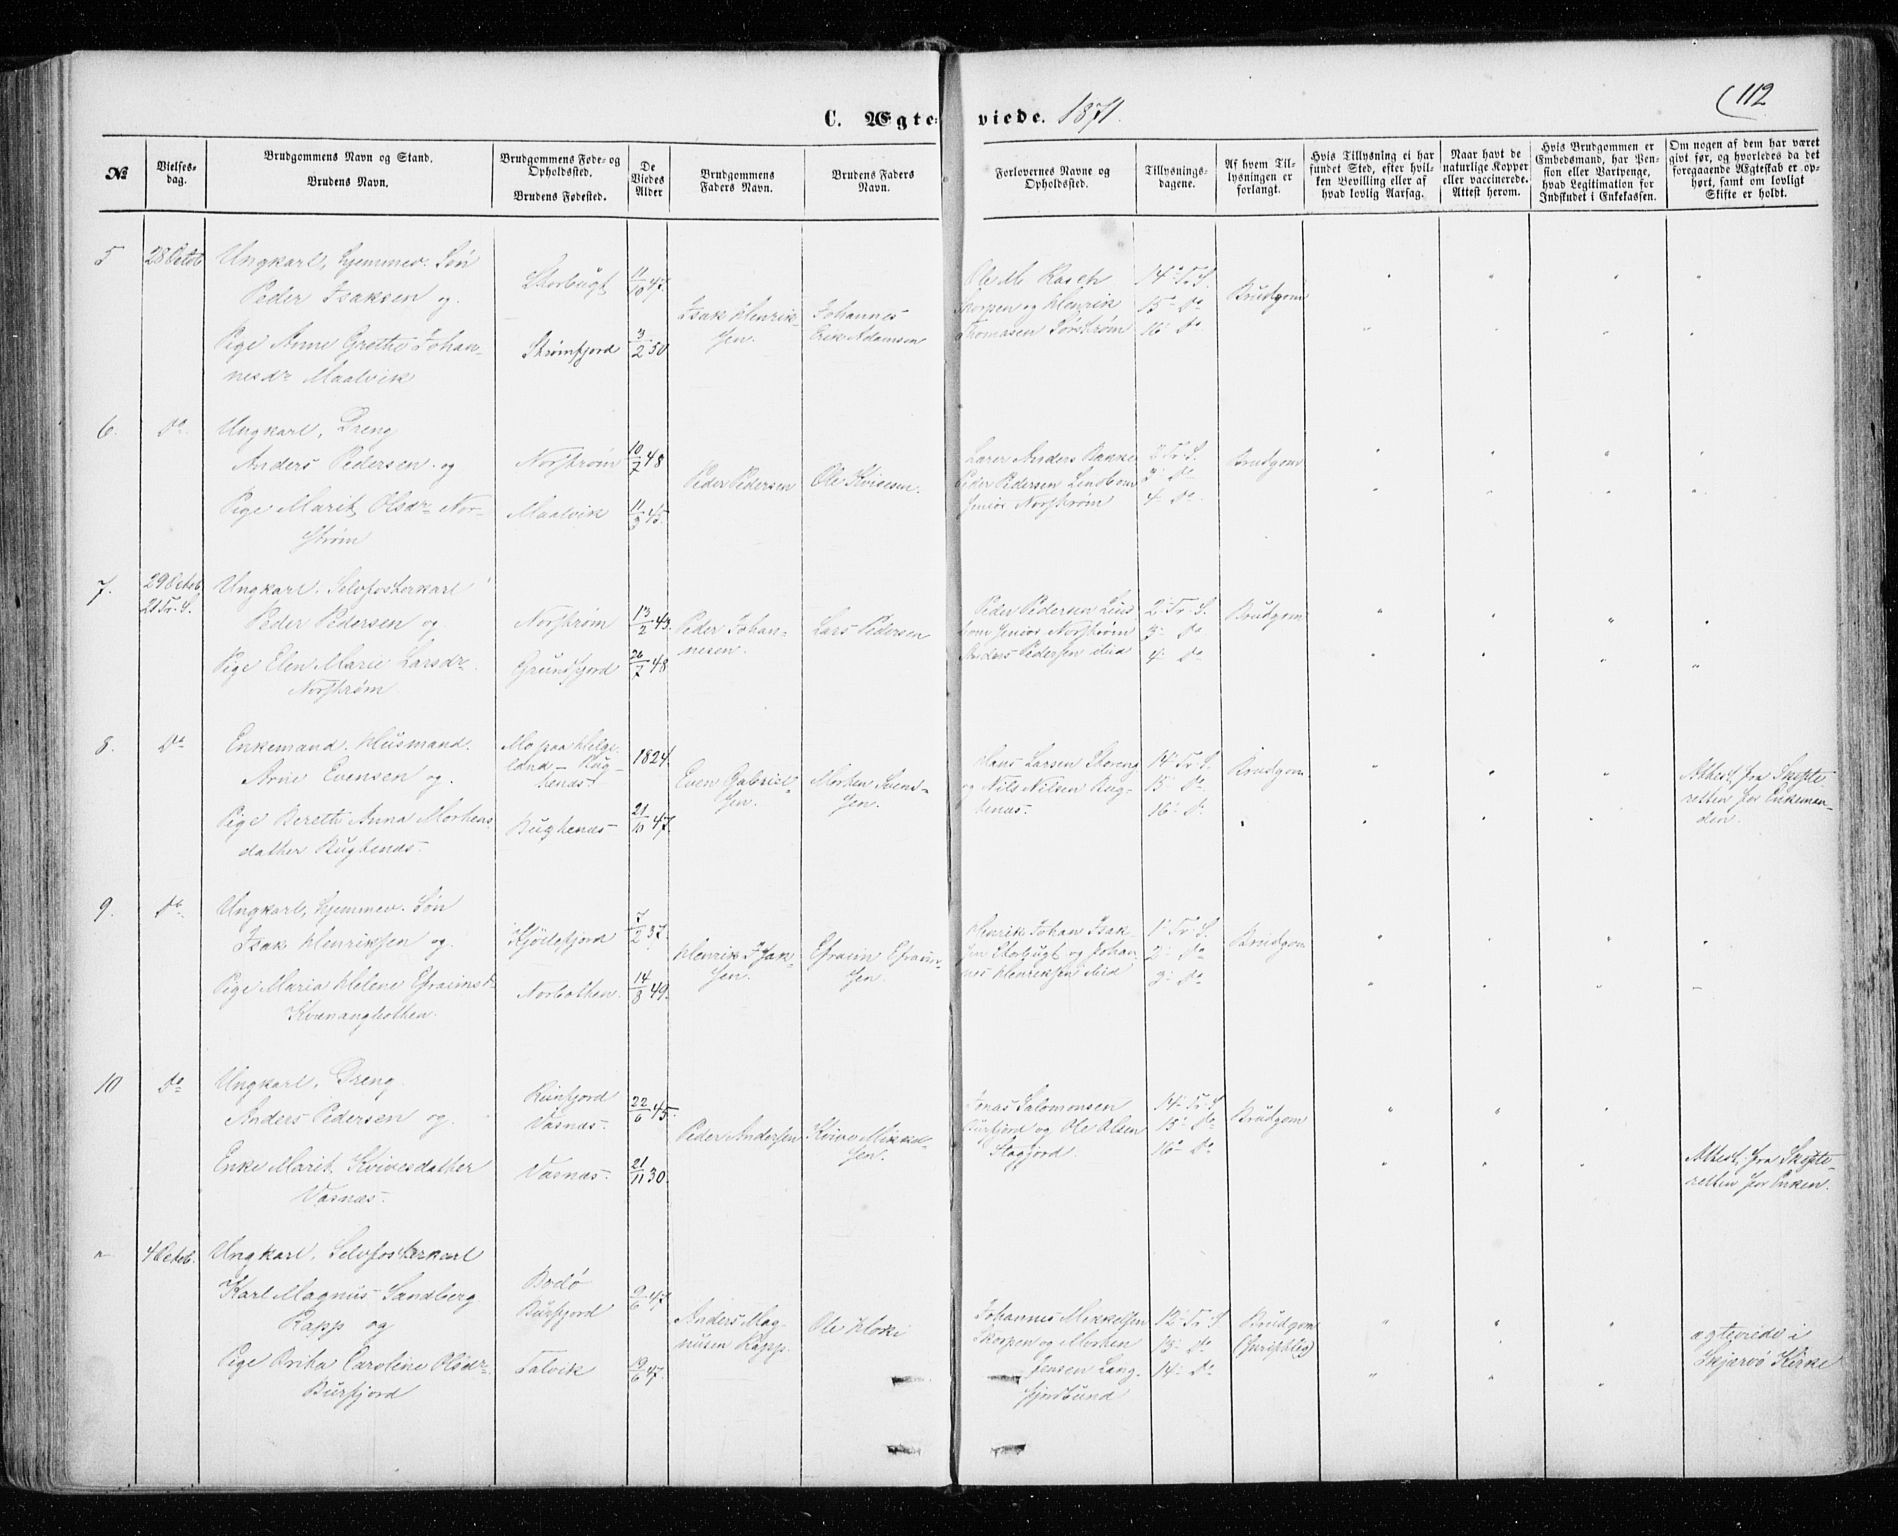 C. Ægteviede. 1871.
(112
No
Vielses-dag.
Brudgommens Navn og Stand.
Brudens Navn.
Brudgommens Føde- og Opholdssted.
Brudens Fødested.
De Viedes Alder
Brudgommens Faders Navn.
Brudens Faders Navn.
Forlovernes Navne og Opholdssted.
Tillysnings-dagene.
Af hvem Til-lysningen er forlangt.
Hvis Tillysning ei har fundet Sted, efter hvil-ken Bevilling eller af hvad lovlig Aarsag.
Naar havt de naturlige Kopper eller vaccinerede. Attest herom.
Hvis Brudgommen er Embedsmand, har Pen-sion eller Vartpenge, hvad Legitimation for Indskudet i Enkekassen.
Om nogen af dem har været givt før, og hvorledes da det foregaaende Ægteskab er op-hørt, samt om lovligt Skifte er holdt.
5 28 Octob Ungkarl, hjemmev. Søn
Peder Isaksen og
Storbugt 11/10 47.
Pige Anne Grethe Johan-
nesdr Maalvik
Strømfjord 3/2 50
Isak Henrik-
sen.
Johannes
Erik Adamsen
Ole M. Rasch
Skorpen og Henrik
Thomasen Sørstrøm
14 Tr. S.
15 Do
16 Do
Brudgom
6. Do. Ungkarl, Dreng
Anders Pedersen og
Norstrøm 10/7 48
Pige Marit Olsdr Nor-
strøm
Maalvik 11/3 45.
Peder Pedersen
Ole Kvivesen.
Anders Bakke
Peder Pedersen Lindbom
Senior Norstrøm
2 Tr. S.
3 Do
4 Do
Brudgom
7. 29 Octob
21 Tr. S.
Ungkarl. Selvfosterkarl
Peder Pedersen og
Norstrøm 13/2 43.
Pige Elen Marie Larsdr.
Norstrøm
Grundfjord 26/7 48
Peder Johan-
nesen.
Lars Pedersen
Peder Pedersen Lind-
bom Senior Norstrøm
Anders Pedersen ibid
2 Tr. S.
3 Do
4 Do
Brudgom
8. Do Enkemand. Husmand.
Arne Evensen og
Mo paa Helge-
land - Bug-
tenæs
1824.
Pige Bereth Anna Mortens
datter Bugtenæs.
Bugtenæs 21/10 47.
Even Gabriel-
sen.
Morten Svend-
sen.
Hans Larsen Storeng
og Nils Nilsen Bug-
tenæs.
14 Tr. S.
15 Do
16 D.
Brudgom
Attest fra Skifte-
retten for Enkeman-
den.
9. Do. Ungkarl, hjemmev. Søn
Isak Henriksen og
Kjøllefjord 7/2 37.
Pige Maria Helene Efraimsdr
Kvænangbotten.
Norbotten. 14/8 49.
Henrik Isak-
sen.
Efraim Efraim-
sen.
Henrik Johan Isak-
sen Storbugt og Johan-
nes Henriksen ibid
1 Tr. S.
2 Do
3 Do
Brudgom
10 Do Ungkarl, Dreng.
Anders Pedersen og
Vasnæs.
22/6 45.
Enke Marit Kvivesdatter
Vasnæs.
Vasnæs. 21/11 30.
Peder Andersen
Kvive Mikkel-
sen.
Jonas Salomonsen
Burfjord og Ole Olsen
14 Tr. S.
15 Do
16 Do
Brudgom
Attest fra Skifte-
retten for Enken.
4 Octob. Ungkarl. Selvfosterkarl
Karl Magnus Sandberg
Rapp og
Bodø
Burfjord
9/6 47.
Pige Brita Caroline Olsdr.
Burfjord
Talvik 19/6 47.
Anders Mag-
nusen Rapp.
Ole Hoski
Johannes Mikkelsen
Skorpen og Morten
Jensen Lang-
fjordbund
12 Tr. S
13 Do
14 Do
Brudgom
(skriftlig)
ægteviede i
Skjærvø Kirke